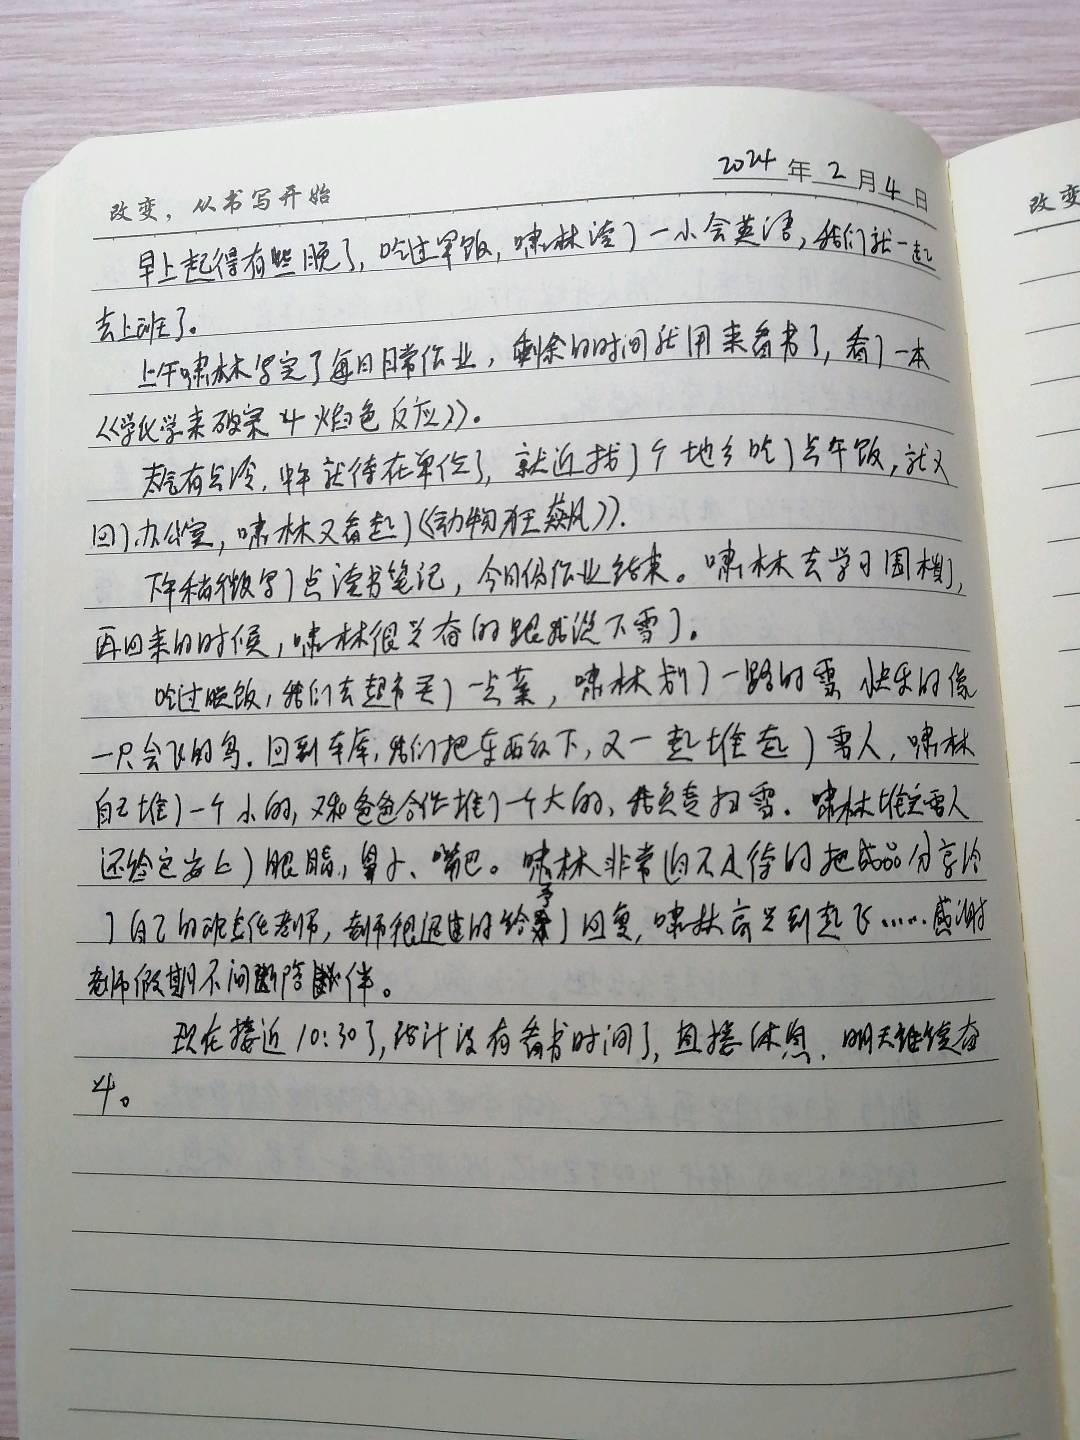 2024年2月4日
改变，从书写开始
改变
早上起得有些晚了，吃过早饭，啸林读了一小会英语，我们就一起
去上班了。
上午啸林写完了每日日常作业，剩余的时间就用来看书了，看了一本
《学化学来破案4焰色反应》。
天气有点冷，中午就待在单位了，就近找了个地方吃了点午饭，就又
回了办公室，啸林又看起了《动物狂飙》。
下午稍微写了点读书笔记，今日份作业结束。啸林去学习围棋了，
再回来的时候，啸林很兴奋的跟我说下雪了。
吃过晚饭，我们去超市买了一点菜，啸林划了一路的雪 快乐的像
一只会飞的鸟。回到车库，我们把东西放下，又一起堆起了雪人，啸林
自己堆了一个小的，又和爸爸合作堆了一个大的，我负责扫雪。啸林堆完雪人
还给它安上了眼睛，鼻子、嘴巴。啸林非常迫不及待的把成品分享给
了自己的班主任老师，老师很迅速的给予了回复，啸林高兴到起飞……感谢
老师假期不间断陪伴。
现在接近10:30了，估计没有看书时间了，直接休息，明天继续奋
斗。